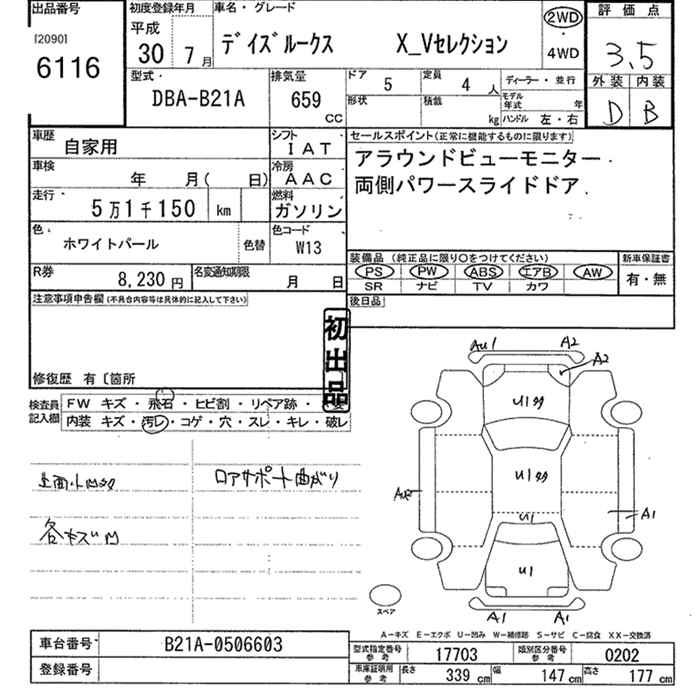 出品番号
I20901
6116
初度登録年月
平成
30 7月
車名・グレード
デイズルークス X_Vセレクション
2WD
・
4WD
評価点
3.5
外装 内装
D B
型式
DBA-B21A
排気量
659
CC
ドア 5
定員 4人
ディーラー・並行
形状
積載 kg
モデル年式 年
ハンドル 左・右
車歴 自家用
シフト IAT
車検 年 月( 日)
冷房 AAC
走行 5万1千150 km
燃料 ガソリン
色 ホワイトパール 色替
色コード W13
R券 8,230円
名変通知期限 月 日
セールスポイント(正常に機能するものに限ります)
アラウンドビューモニター
両側パワースライドドア
装備品 (純正品に限り○をつけてください)
PS PW ABS エアB AW
SR ナビ TV カワ
新車保証書
有・無
後日品
注意事項申告欄(不具合内容等は具体的に記入して下さい)
初出品
修復歴 有〔箇所
検査員記入欄
FW キズ・飛石・ヒビ割・リペア跡・
内装 キズ・汚レ・コゲ・穴・スレ・キレ・破レ
ロアサポート曲がり
各キズ凹
AU1 A2
A2
U1多
U1多
U1
A1
U1
A1 A1
スペア
A-キズ E-エクボ U-凹み W-補修跡 S-サビ C-腐食 XX-交換済
車台番号 B21A-0506603
登録番号
型式指定番号 参考 17703
類別区分番号 参考 0202
車庫証明用 参考 長さ 339 cm 幅 147 cm 高さ 177 cm